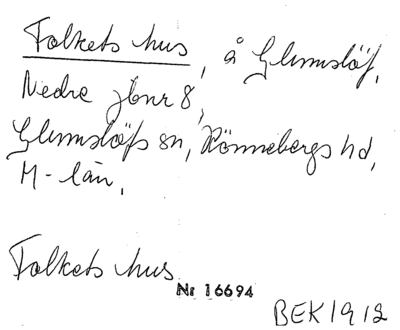 Folkets hus, å Glumslöf,
Nedre jbnr 8,
Glumslöfs sn, Rönnebergs hd,
M-län.
Folkets hus
Nr 16694
BEK 1912